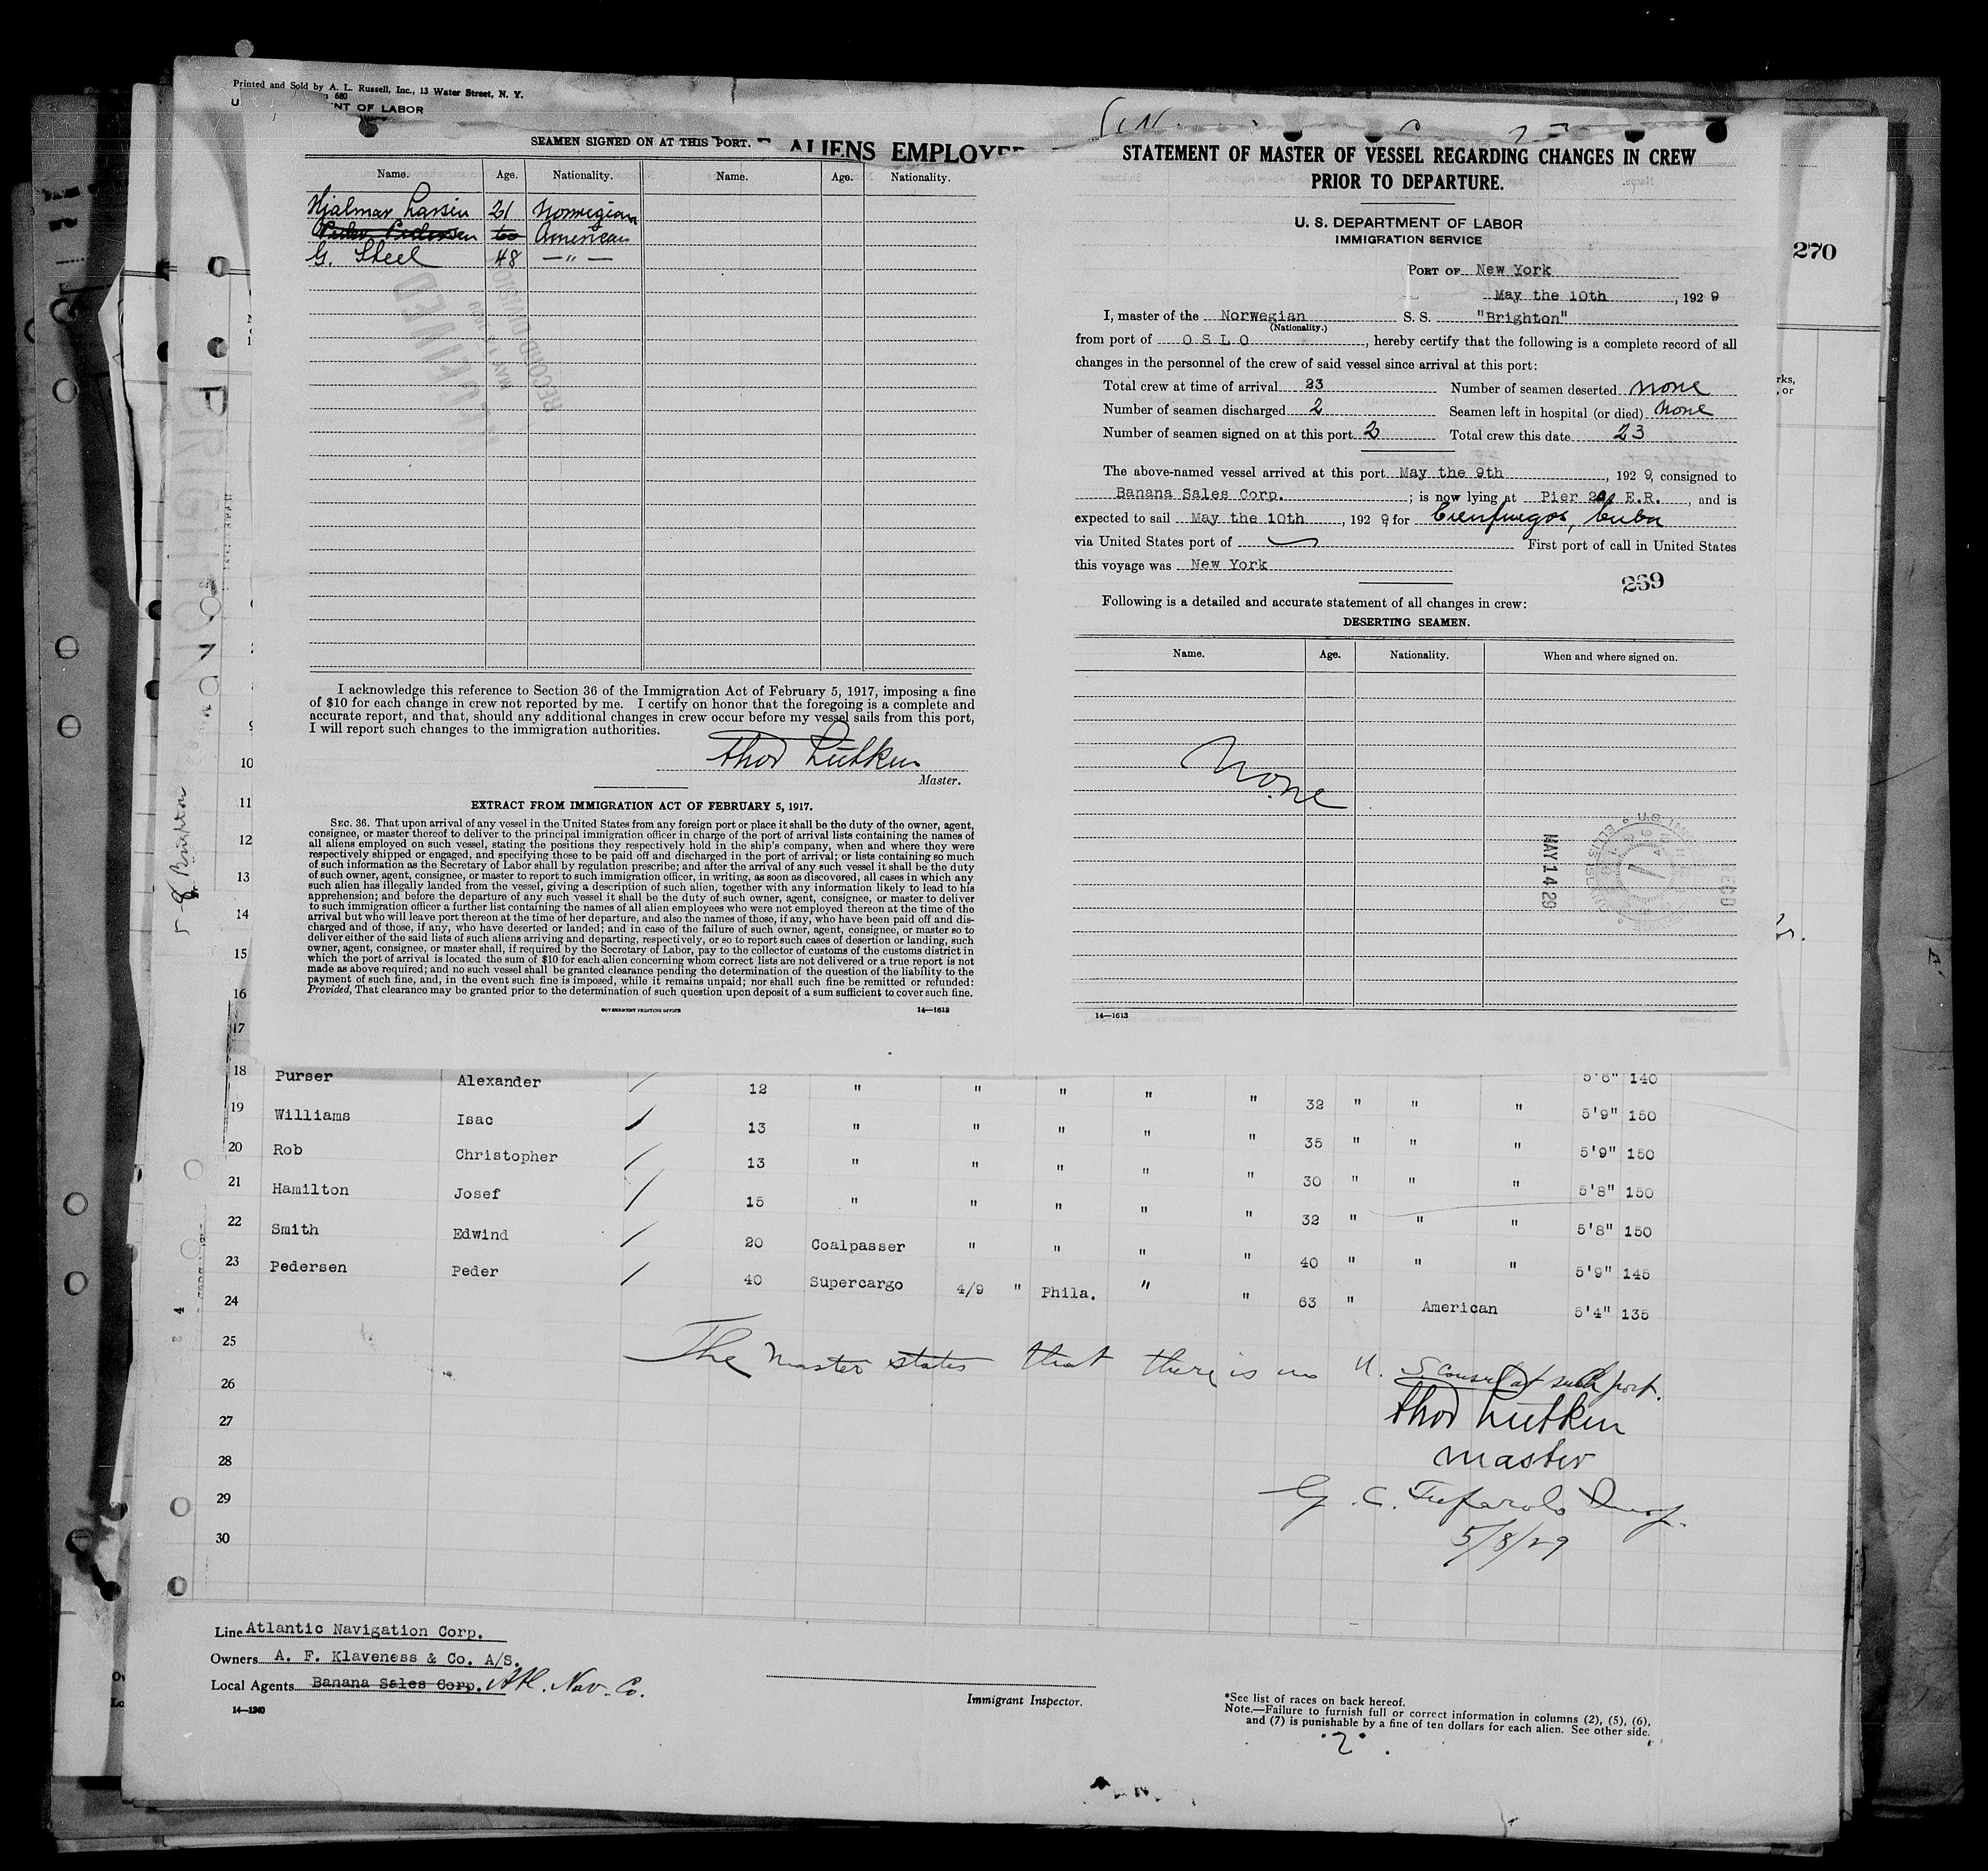 Printed and Sold by A. L. Russell, Inc., 13 Water Street, N. Y.
680
NT OF LABOR
ALIENS EMPLOYE
SEAMEN SIGNED ON AT THIS PORT.
Name. Age. Nationality. Name. Age. Nationality.
Hjalmar Larsen 21 Norwegian
Peder Pedersen 60 American
G. Steel 48 — " —
RECORD DIVISION
I acknowledge this reference to Section 36 of the Immigration Act of February 5, 1917, imposing a fine
of $10 for each change in crew not reported by me. I certify on honor that the foregoing is a complete and
accurate report, and that, should any additional changes in crew occur before my vessel sails from this port,
I will report such changes to the immigration authorities.
Thod Lütken
Master.
EXTRACT FROM IMMIGRATION ACT OF FEBRUARY 5, 1917.
SEC. 36. That upon arrival of any vessel in the United States from any foreign port or place it shall be the duty of the owner, agent,
consignee, or master thereof to deliver to the principal immigration officer in charge of the port of arrival lists containing the names of
all aliens employed on such vessel, stating the positions they respectively hold in the ship's company, when and where they were
respectively shipped or engaged, and specifying those to be paid off and discharged in the port of arrival; or lists containing so much
of such information as the Secretary of Labor shall by regulation prescribe; and after the arrival of any such vessel it shall be the duty
of such owner, agent, consignee, or master to report to such immigration officer, in writing, as soon as discovered, all cases in which any
such alien has illegally landed from the vessel, giving a description of such alien, together with any information likely to lead to his
apprehension; and before the departure of any such vessel it shall be the duty of such owner, agent, consignee, or master to deliver
to such immigration officer a further list containing the names of all alien employees who were not employed thereon at the time of the
arrival but who will leave port thereon at the time of her departure, and also the names of those, if any, who have been paid off and dis-
charged and of those, if any, who have deserted or landed; and in case of the failure of such owner, agent, consignee, or master so to
deliver either of the said lists of such aliens arriving and departing, respectively, or so to report such cases of desertion or landing, such
owner, agent, consignee, or master shall, if required by the Secretary of Labor, pay to the collector of customs of the customs district in
which the port of arrival is located the sum of $10 for each alien concerning whom correct lists are not delivered or a true report is not
made as above required; and no such vessel shall be granted clearance pending the determination of the question of the liability to the
payment of such fine, and, in the event such fine is imposed, while it remains unpaid; nor shall such fine be remitted or refunded:
Provided, That clearance may be granted prior to the determination of such question upon deposit of a sum sufficient to cover such fine.
GOVERNMENT PRINTING OFFICE 14—1613
STATEMENT OF MASTER OF VESSEL REGARDING CHANGES IN CREW
PRIOR TO DEPARTURE.
U. S. DEPARTMENT OF LABOR
IMMIGRATION SERVICE
PORT OF New York
May the 10th, 1929
I, master of the Norwegian S. S. "Brighton"
(Nationality.)
from port of O S L O, hereby certify that the following is a complete record of all
changes in the personnel of the crew of said vessel since arrival at this port:
Total crew at time of arrival 23 Number of seamen deserted none
Number of seamen discharged 2 Seamen left in hospital (or died) none
Number of seamen signed on at this port 2 Total crew this date 23
The above-named vessel arrived at this port May the 9th, 1929, consigned to
Banana Sales Corp. ; is now lying at Pier E.R., and is
expected to sail May the 10th, 1929 for Cienfuegos, Cuba
via United States port of First port of call in United States
this voyage was New York
269
Following is a detailed and accurate statement of all changes in crew:
DESERTING SEAMEN.
Name. Age. Nationality. When and where signed on.
None
MAY 14 29
REC'D
14—1613
270
rks,
, or
BRIGHTON
S/S Brighton
9
10
11
12
13
14
15
16
17
18 Purser Alexander / 12 " " " " " 32 " " " 5'6" 140
19 Williams Isac / 13 " " " " " 35 " " " 5'9" 150
20 Rob Christopher / 13 " " " " " 30 " " " 5'9" 150
21 Hamilton Josef / 15 " " " " " 32 " " " 5'8" 150
22 Smith Edwind / 20 Coalpasser " " " " 40 " " " 5'8" 150
23 Pedersen Peder / 40 Supercargo 4/9 " Phila. " " 63 " American 5'9" 145
24 5'4" 135
25
The master states that there is no U. S consul at such port.
26
Thod Lütken
27
master
28
29
30
5/8/29
Line Atlantic Navigation Corp.
Owners A. F. Klaveness & Co. A/S.
Local Agents Banana Sales Corp. Atl. Nav. Co.
14—1240
Immigrant Inspector.
*See list of races on back hereof.
Note.—Failure to furnish full or correct information in columns (2), (5), (6),
and (7) is punishable by a fine of ten dollars for each alien. See other side.
"2"